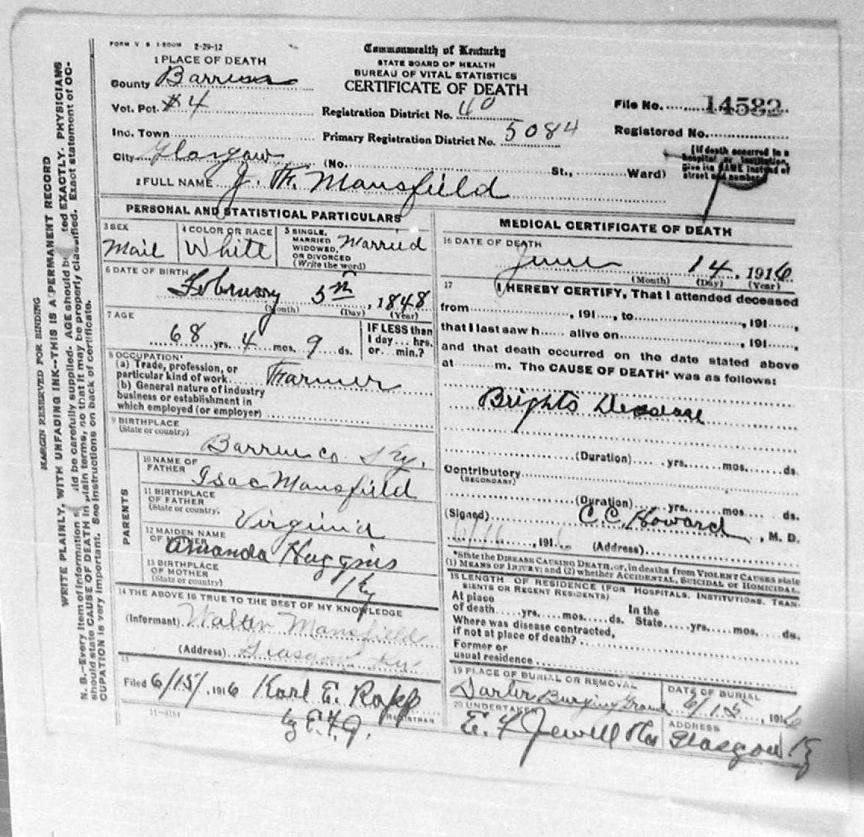 FORM V. S. 1-500M 2-29-12
1 PLACE OF DEATH
County Barren
Vot. Pct. #4
Inc. Town
City Glasgow (No. St., Ward)
2 FULL NAME J. Mansfield
Commonwealth of Kentucky
STATE BOARD OF HEALTH
BUREAU OF VITAL STATISTICS
CERTIFICATE OF DEATH
Registration District No. 40
Primary Registration District No. 5084
File No. 14582
Registered No.
(If death occurred in a
hospital or institution,
give its NAME instead of
street and number.)
MARGIN RESERVED FOR BINDING
WRITE PLAINLY, WITH UNFADING INK--THIS IS A PERMANENT RECORD
N. B.--Every item of information should be carefully supplied. AGE should be stated EXACTLY. PHYSICIANS
should state CAUSE OF DEATH in plain terms, so that it may be properly classified. Exact statement of OC-
CUPATION is very important. See instructions on back of certificate.
PERSONAL AND STATISTICAL PARTICULARS
3 SEX
Mail
4 COLOR OR RACE
White
5 SINGLE,
MARRIED
WIDOWED,
OR DIVORCED
(Write the word)
Married
6 DATE OF BIRTH
February 5th, 1848
(Month) (Day) (Year)
7 AGE
68 yrs. 4 mos. 9 ds.
IF LESS than
1 day... hrs.
or... min.?
8 OCCUPATION
(a) Trade, profession, or
particular kind of work Farmer
(b) General nature of industry
business or establishment in
which employed (or employer)
9 BIRTHPLACE
(State or country)
Barren Co. Ky.
PARENTS
10 NAME OF
FATHER
Isac Mansfield
11 BIRTHPLACE
OF FATHER
(State or country)
Virginia
12 MAIDEN NAME
OF MOTHER
Amanda Huggins
13 BIRTHPLACE
OF MOTHER
(State or country)
Ky
14 THE ABOVE IS TRUE TO THE BEST OF MY KNOWLEDGE
(Informant) Walter Mansfield
(Address) Glasgow Ky
15
Filed 6/15, 1916 Karl E. Rapp
REGISTRAR
MEDICAL CERTIFICATE OF DEATH
16 DATE OF DEATH
June 14, 1916
(Month) (Day) (Year)
17 I HEREBY CERTIFY, That I attended deceased
from , 191 , to , 191
that I last saw h alive on , 191
and that death occurred on the date stated above
at m. The CAUSE OF DEATH* was as follows:
Brights Disease
(Duration) yrs. mos. ds.
Contributory
(SECONDARY)
(Duration) yrs. mos. ds.
(Signed) C. C. Howard, M. D.
6/16, 191 (Address)
*State the DISEASE CAUSING DEATH, or, in deaths from VIOLENT CAUSES state
(1) MEANS OF INJURY; and (2) whether ACCIDENTAL, SUICIDAL or HOMICIDAL.
18 LENGTH OF RESIDENCE (FOR HOSPITALS, INSTITUTIONS, TRAN-
SIENTS OR RECENT RESIDENTS)
At place
of death yrs. mos. ds.
In the
State yrs. mos. ds.
Where was disease contracted,
if not at place of death?
Former or
usual residence
19 PLACE OF BURIAL OR REMOVAL
Burying Ground
DATE OF BURIAL
6/15, 1916
20 UNDERTAKER
E. Y Jewell
ADDRESS
Glasgow Ky